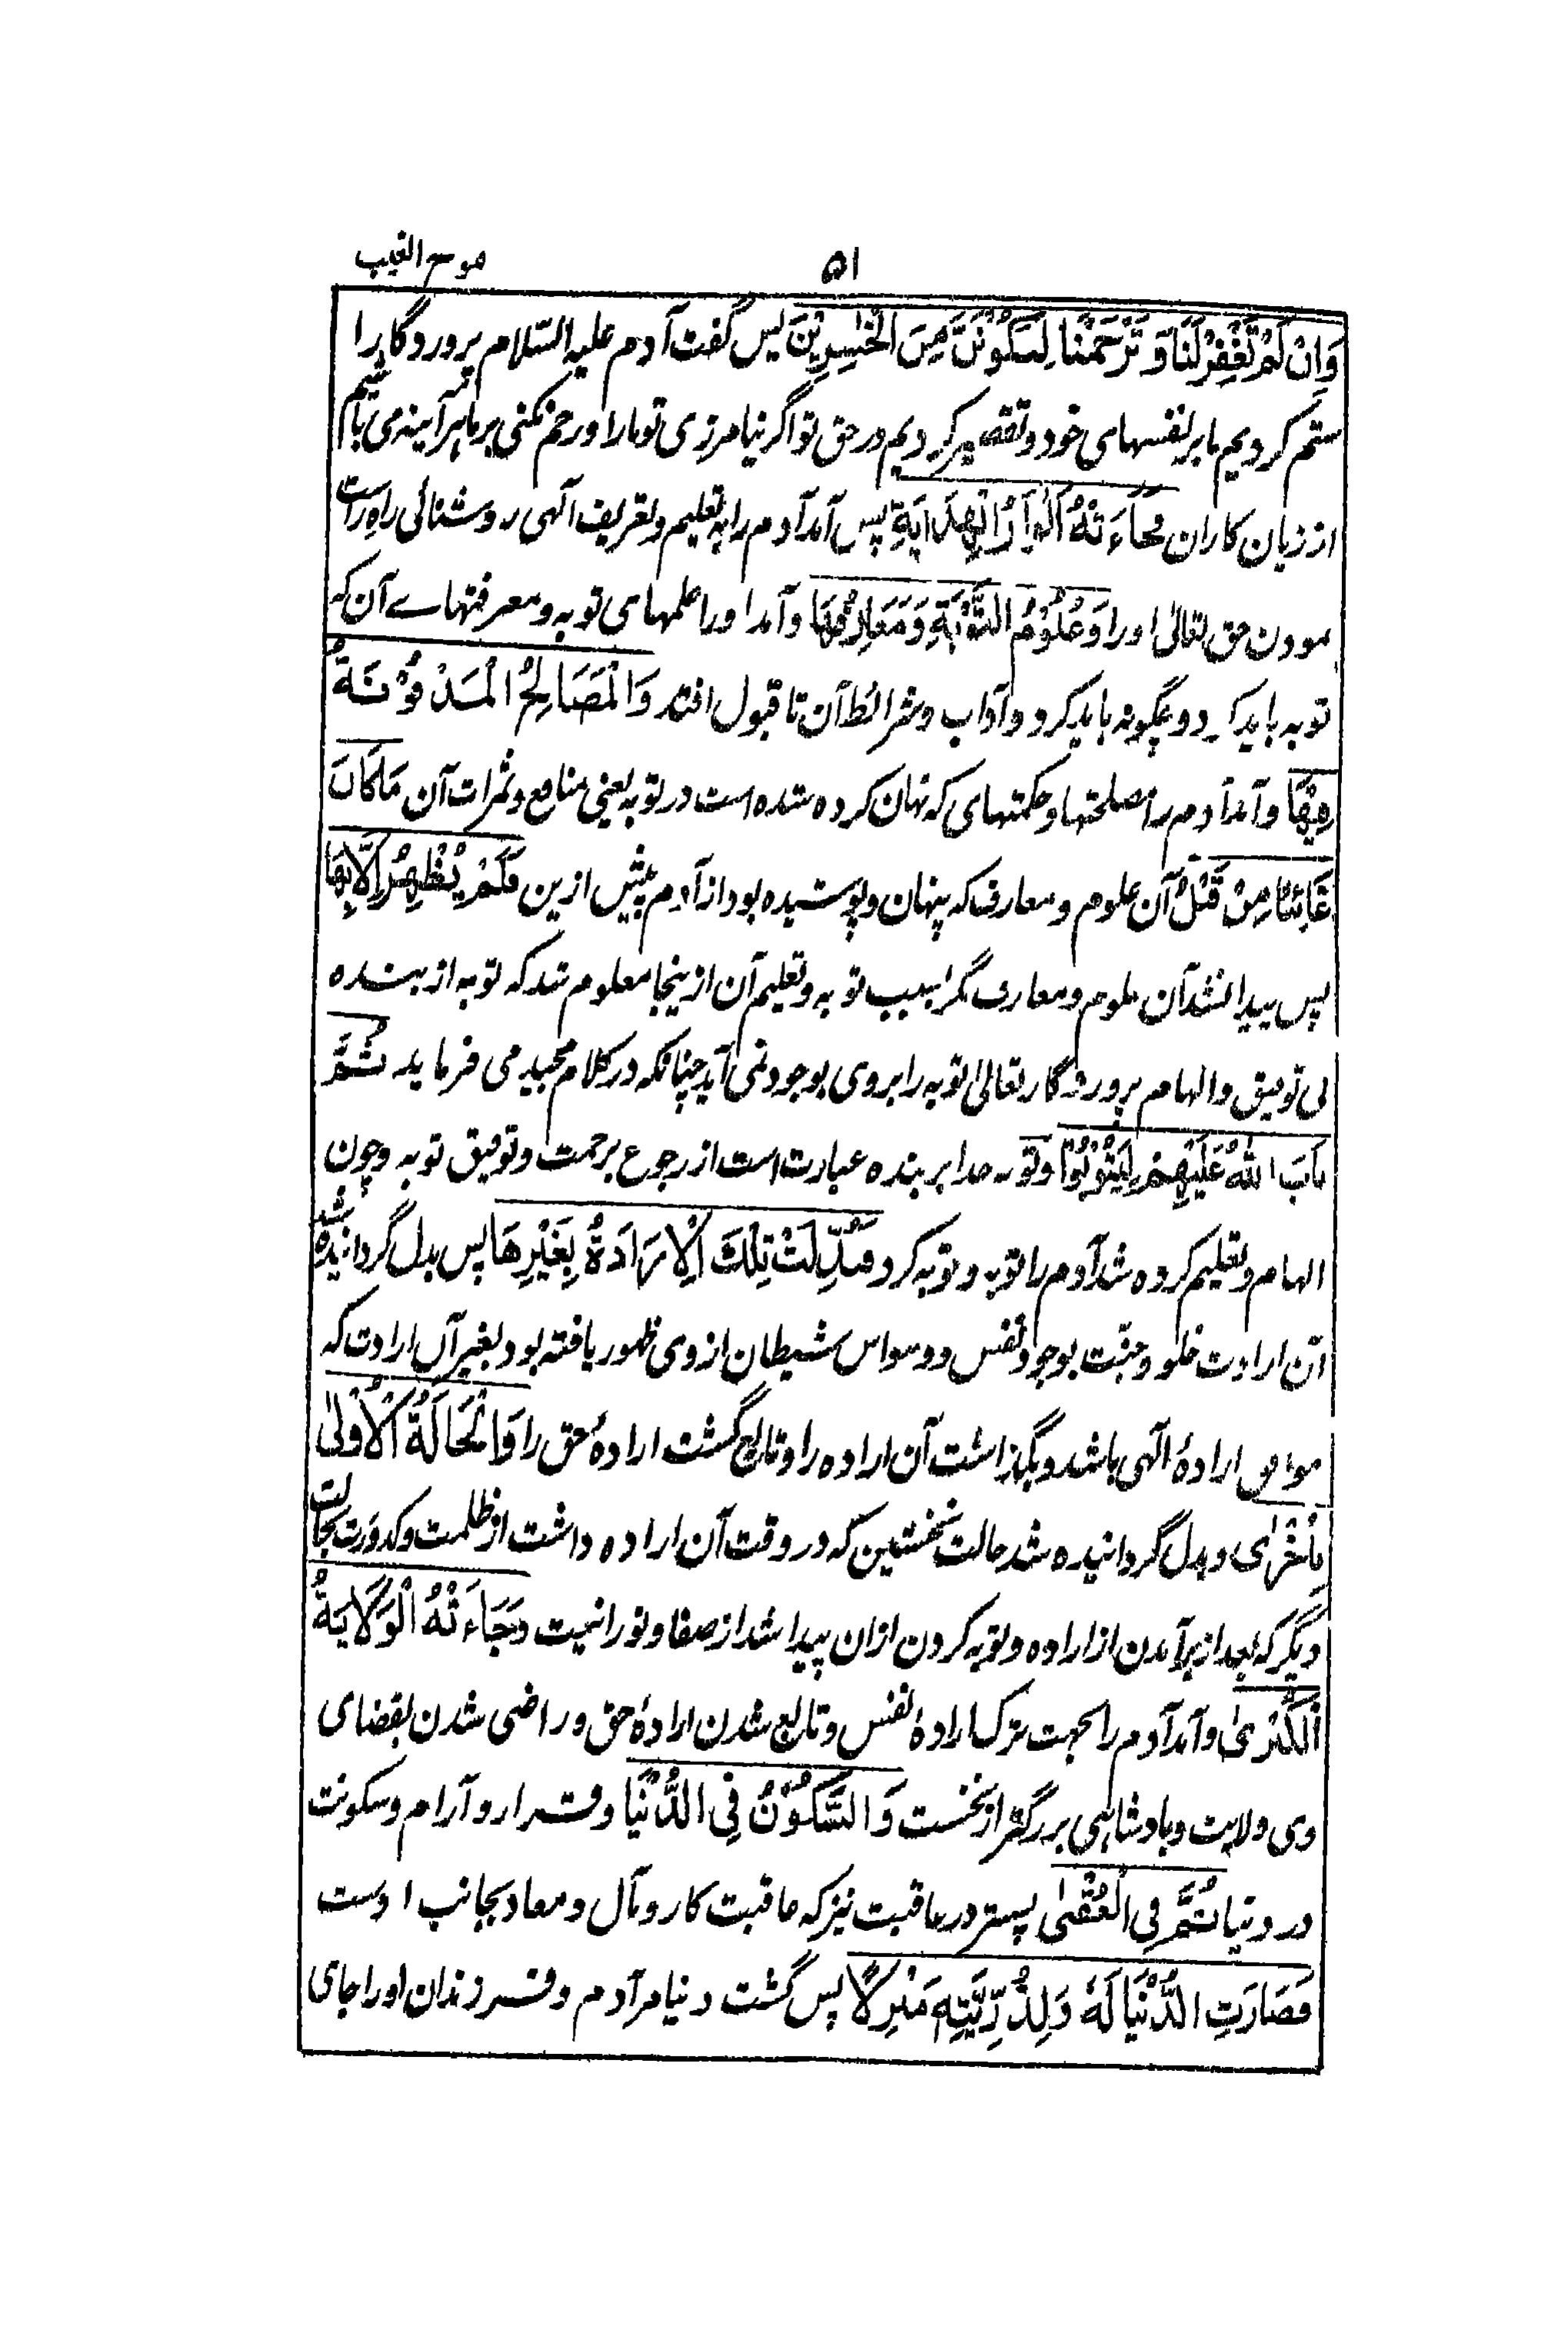 ۵۱
الغیب
وَاِنْ لَمْ تَغْفِرْ لَنَا وَ تَرْحَمْنَا لَنَکُوْنَنَّ مِنَ الْخٰسِرِیْنَ پس گفت آدم علیہ السّلام پروردگار را
ستم کردیم ما بر نفسہای خود و تقصیر کردیم در حق تو اگر نیامرزی تو مارا و رحم نکنی بر ما ہر آینہ می باشیم
از زیان کاران فَجَاءَتْهُ اَنْوَارُ الْهِدَایَةِ پس آمد آدم را بہ تعلیم و تعریف الٰہی روشنائی راہ راست
نمودن حق تعالیٰ اورا وَعُلُوْمُ التَّوْبَةِ وَمَعَارِفُهَا و آمد اورا علمہای توبہ و معرفتہاے آن کہ
توبہ باید کرد و چگونہ باید کرد و آداب و شرائط آن تا قبول افتد وَالْمَصَالِحُ الْمَدْفُوْنَةُ
فِیْهَا و آمد آدم را مصلحتہا و حکمتہای کہ نہان کردہ شدہ است در توبہ یعنی منافع و ثمرات آن مَاکَانَ
غَائِبًا مِنْ قَبْلُ آن علوم و معارف کہ پنہان و پوشیدہ بود از آدم پیش ازین فَلَمْ یُظْهِرْ اِلَّا بِهَا
پس پیدا نشد آن علوم و معارف مگر بسبب توبہ و تعلیم آن ازینجا معلوم شد کہ توبہ از بندہ
بی توفیق و الہام پروردگار تعالیٰ توبہ را بروی بوجود نمی آید چنانکہ در کلام مجید می فرماید ثُمَّ
تَابَ اللهُ عَلَیْهِمْ لِیَتُوْبُوْا و توبہ خدا بر بندہ عبارت است از رجوع برحمت و توفیق توبہ و چون
الہام و تعلیم کردہ شد آدم را توبہ و توبہ کرد فَبُدِّلَتْ تِلْكَ الْاِرَادَةُ بِغَیْرِهَا پس بدل گردانیدہ شد
آن ارادت خلود جنّت بوجود نفس و وسواس شیطان از وی ظہور یافتہ بود بغیر آن ارادت کہ
موافق ارادۂ الٰہی باشد و بگذاشت آن ارادہ را و تابع گشت ارادۂ حق را وَالْحَالَةُ الْاُوْلٰی
بِاُخْرٰی و بدل گردانیدہ شد حالت نخستین کہ در وقت آن ارادہ داشت از ظلمت و کدورت بحالت
دیگر کہ بعد از برآمدن از ارادہ و توبہ کردن ازان پیدا شد از صفا و نورانیت وَجَاءَتْهُ الْوِلَایَةُ
الْکُبْرٰی و آمد آدم را بجہت ترک ارادۂ نفس و تابع شدن ارادۂ حق و راضی شدن بقضای
وی ولایت و بادشاہی بزرگتر از نخست وَالسُّکُوْنُ فِی الدُّنْیَا و قرار و آرام و سکونت
در دنیا ثُمَّ فِی الْعُقْبٰی پستر در عاقبت نیز کہ عاقبت کار و مآل و معاد بجانب اوست
فَصَارَتِ الدُّنْیَا لَهٗ وَلِذُرِّیَّتِهٖ مَنْزِلًا پس گشت دنیا مر آدم و فرزندان اورا جای